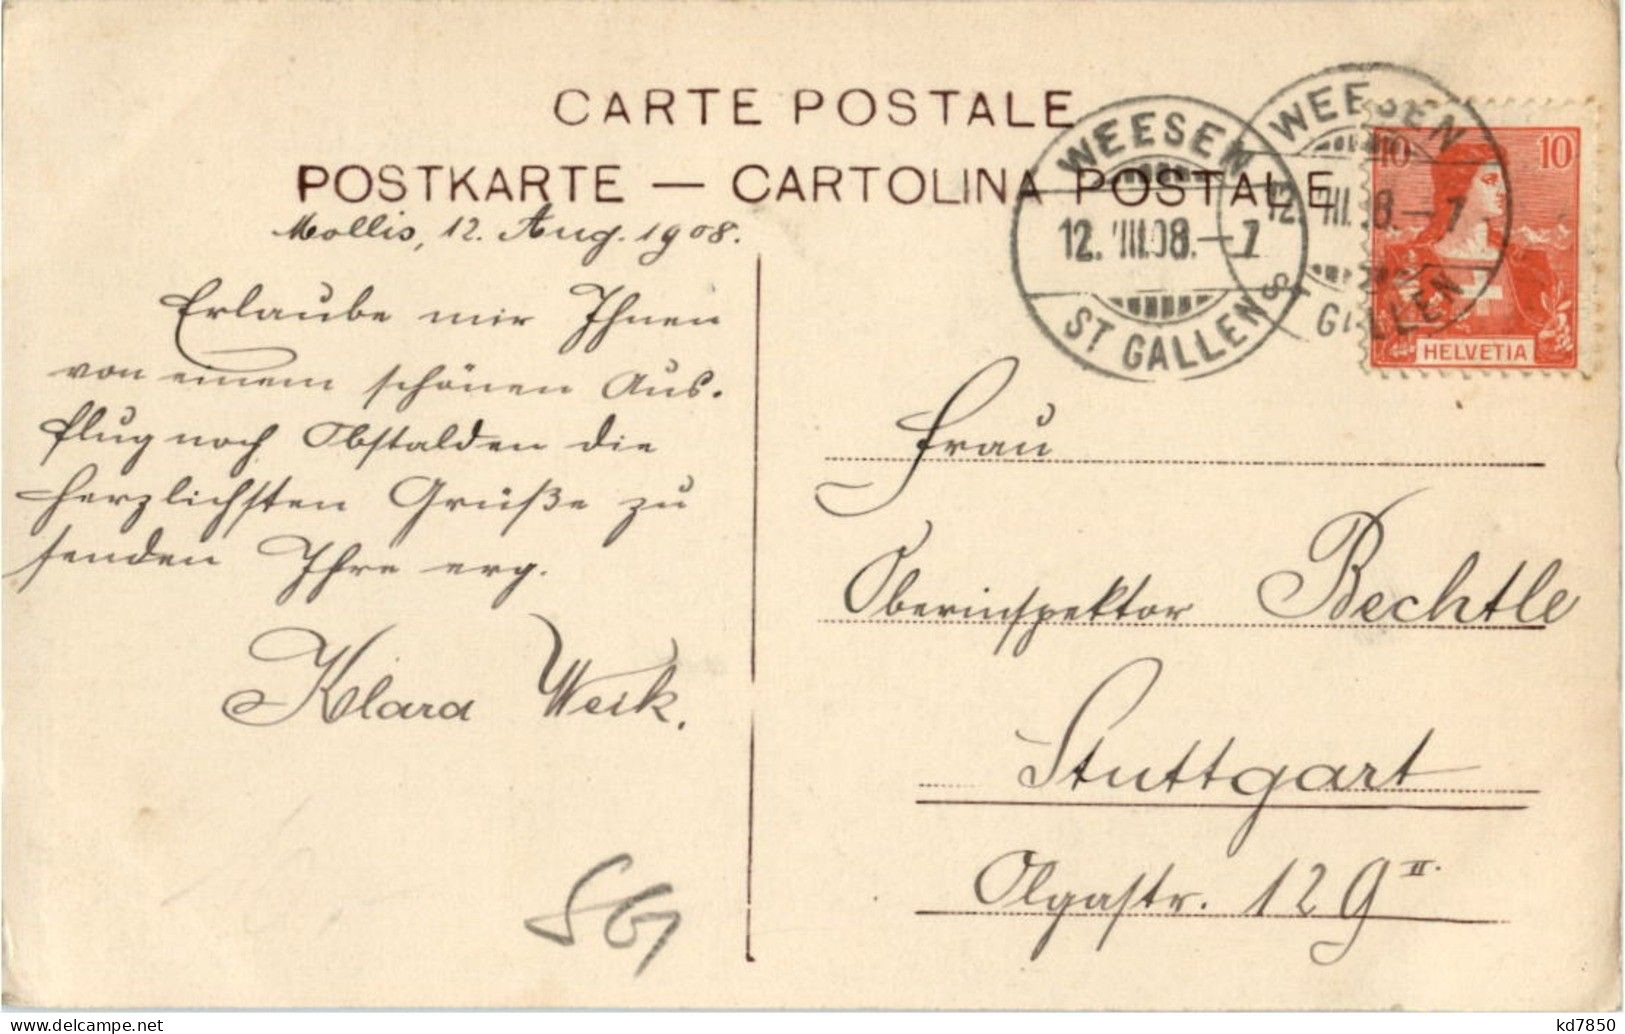 CARTE POSTALE
POSTKARTE — CARTOLINA POSTALE
Mollis, 12. Aug. 1908.
Erlaube mir Ihnen
von einem schönen Aus-
flug nach Obstalden die
herzlichsten Grüße zu
senden Ihre erg.
Klara Weik.
WEESEN
12. VIII.08.–7
ST GALLEN
WEESEN
12. VIII. 8.–7
ST GALLEN
10 10
HELVETIA
Frau
Oberinspektor Bechtle
Stuttgart
Olgastr. 129 II.
SG
delcampe.net
kd7850